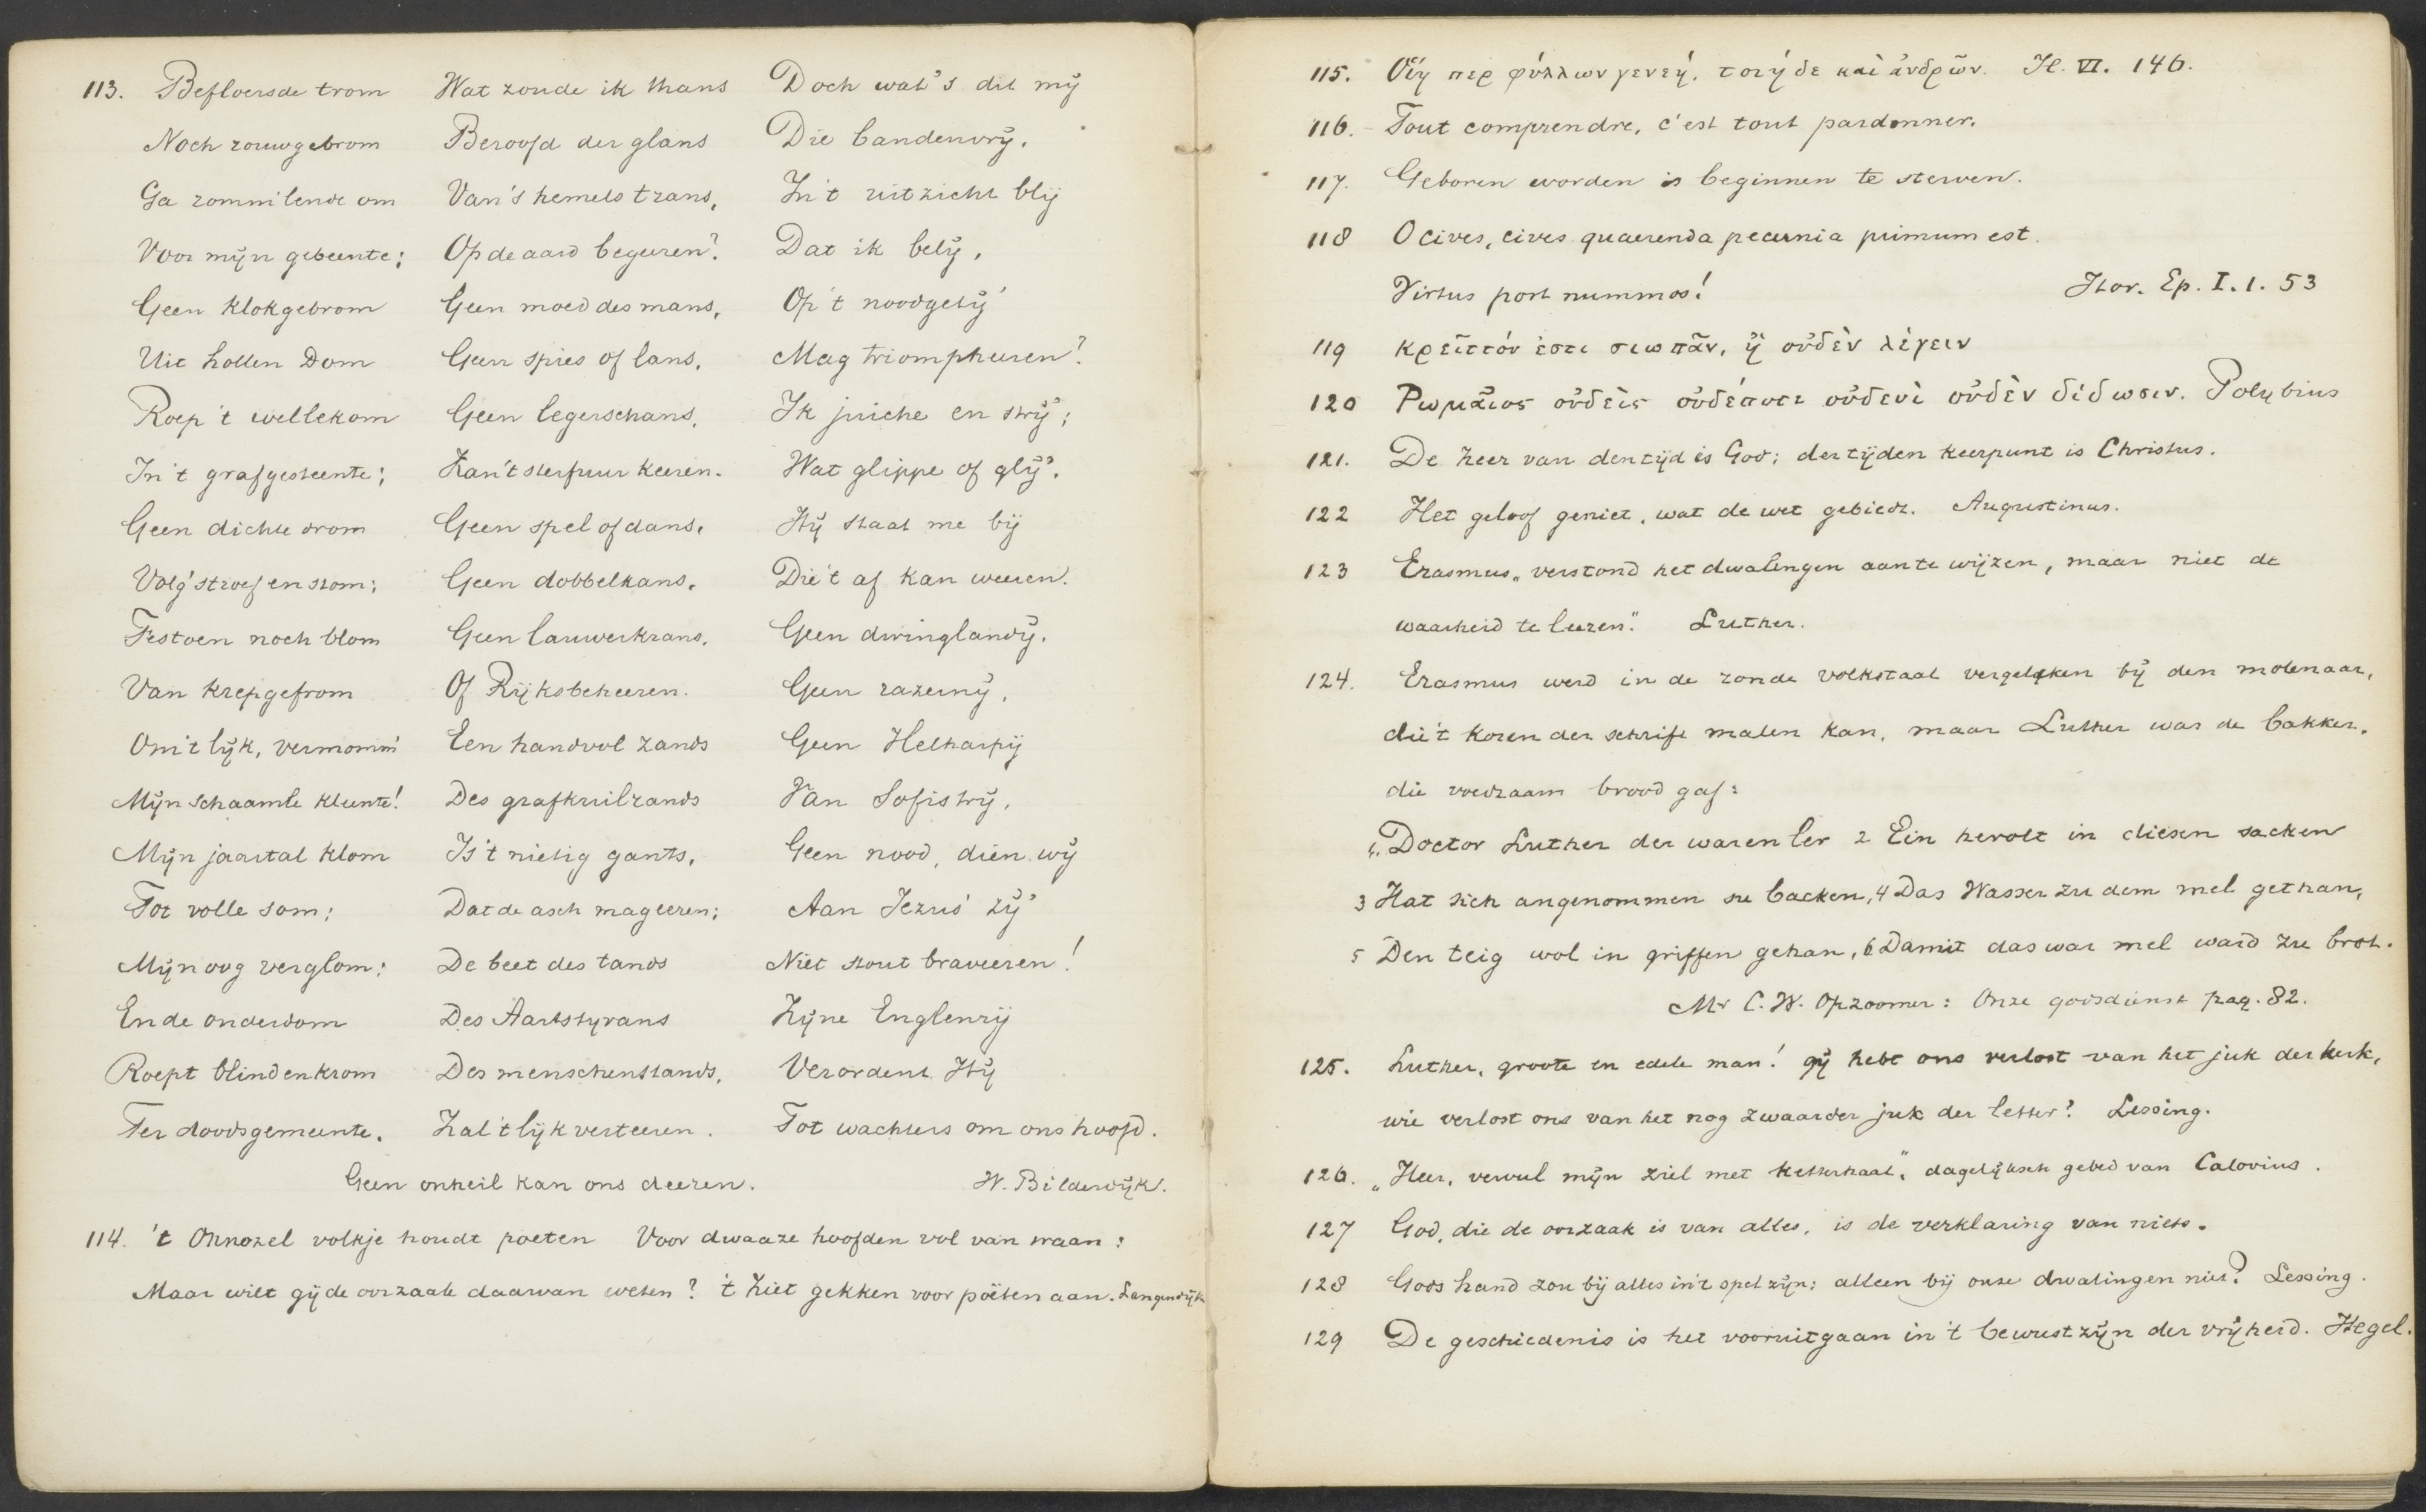 113. Befloersde trom
Noch rouwgebrom
Ga rommilende om
Voor mijn gebeente;
Geen klokgebrom
Uit hollen Dom
Roep 't wellekom
In 't grafgesteente;
Geen dichte drom
Volg' stroef en stom;
Festoen noch blom
Van krepgefrom
Om 't lijk, vermomm'
Mijn schaamle kleente!
Mijn jaartal klom
Tot volle som;
Mijn oog verglom;
En de ouderdom
Roept blind en krom
Ter doodsgemeente.
Wat zoude ik thans
Beroofd der glans
Van 's hemels trans,
Op de aard begeeren?
Geen moed des mans,
Geen spies of lans,
Geen legerschans,
Kan 't sterfuur keeren.
Geen spel of dans,
Geen dobbelkans,
Geen lauwerkrans,
Of Rijksbeheeren.
Een handvol zands
Des grafkuilrands
Is 't nietig gants,
Dat de asch mag eeren;
De beet des tands
Des Aartstyrans
Des menschenstands,
Zal 't lijk verteeren.
Doch wat 's dit mij
Die bandenvrij,
In 't uitzicht blij
Dat ik belij,
Op 't noodgetij'
Mag triompheeren?
Ik juiche en strij';
Wat glippe of glij',
Hij staat me bij
Die 't af kan weeren.
Geen dwinglandij,
Geen razernij,
Geen Helharpij
Van Sofistrij,
Geen nood, dien wij
Aan Jezus' zij'
Niet stout braveeren!
Zijne Englenrij
Verordent Hij
Tot wachters om ons hoofd.
Geen onheil kan ons deeren. W. Bilderdijk.
114. 't Onnozel volkje houdt poëten Voor dwaaze hoofden vol van waan:
Maar wilt gij de oorzaak daarvan weten? 't Ziet gekken voor poëten aan. Langendijk
115. Οἵη περ φύλλων γενεή, τοιήδε καὶ ἀνδρῶν. Il. VI. 146.
116. Tout comprendre, c'est tout pardonner.
117. Geboren worden is beginnen te sterven.
118 O cives, cives quaerenda pecunia primum est.
Virtus post nummos! Hor. Ep. I. 1. 53
119 κρεῖττόν ἐστι σιωπᾶν, ἢ οὐδὲν λέγειν
120 Ρωμᾶιος οὐδεὶς οὐδέποτε οὐδενὶ οὐδὲν δίδωσιν. Polybius
121. De Heer van den tijd is God; der tijden keerpunt is Christus.
122 Het geloof geniet, wat de wet gebiedt. Augustinus.
123 Erasmus „verstond het dwalingen aan te wijzen, maar niet de
waarheid te leeren." Luther.
124. Erasmus werd in de ronde volkstaal vergeleken bij den molenaar,
die 't koren der schrift malen kan, maar Luther was de bakker,
die voedzaam brood gaf:
1„Doctor Luther der waren ler 2 Ein hervolt in diesen sacken
3 Hat sich angenommen su backen, 4 Das Wasser zu dem mel gethan,
5 Den teig wol in griffen gehan, 6 Damit das war mel ward zu brot.
Mr C. W. Opzoomer: Onze godsdienst pag. 82.
125. Luther, groote en edele man! gij hebt ons verlost van het juk der kerk,
wie verlost ons van het nog zwaarder juk der letter? Lessing.
126. „Heer, vervul mijn ziel met ketterhaat", dagelijksch gebed van Calovius.
127 God, die de oorzaak is van alles, is de verklaring van niets.
128 Gods hand zou bij alles in 't spel zijn; alleen bij onze dwalingen niet? Lessing.
129 De geschiedenis is het vooruitgaan in 't bewustzijn der vrijheid. Hegel.